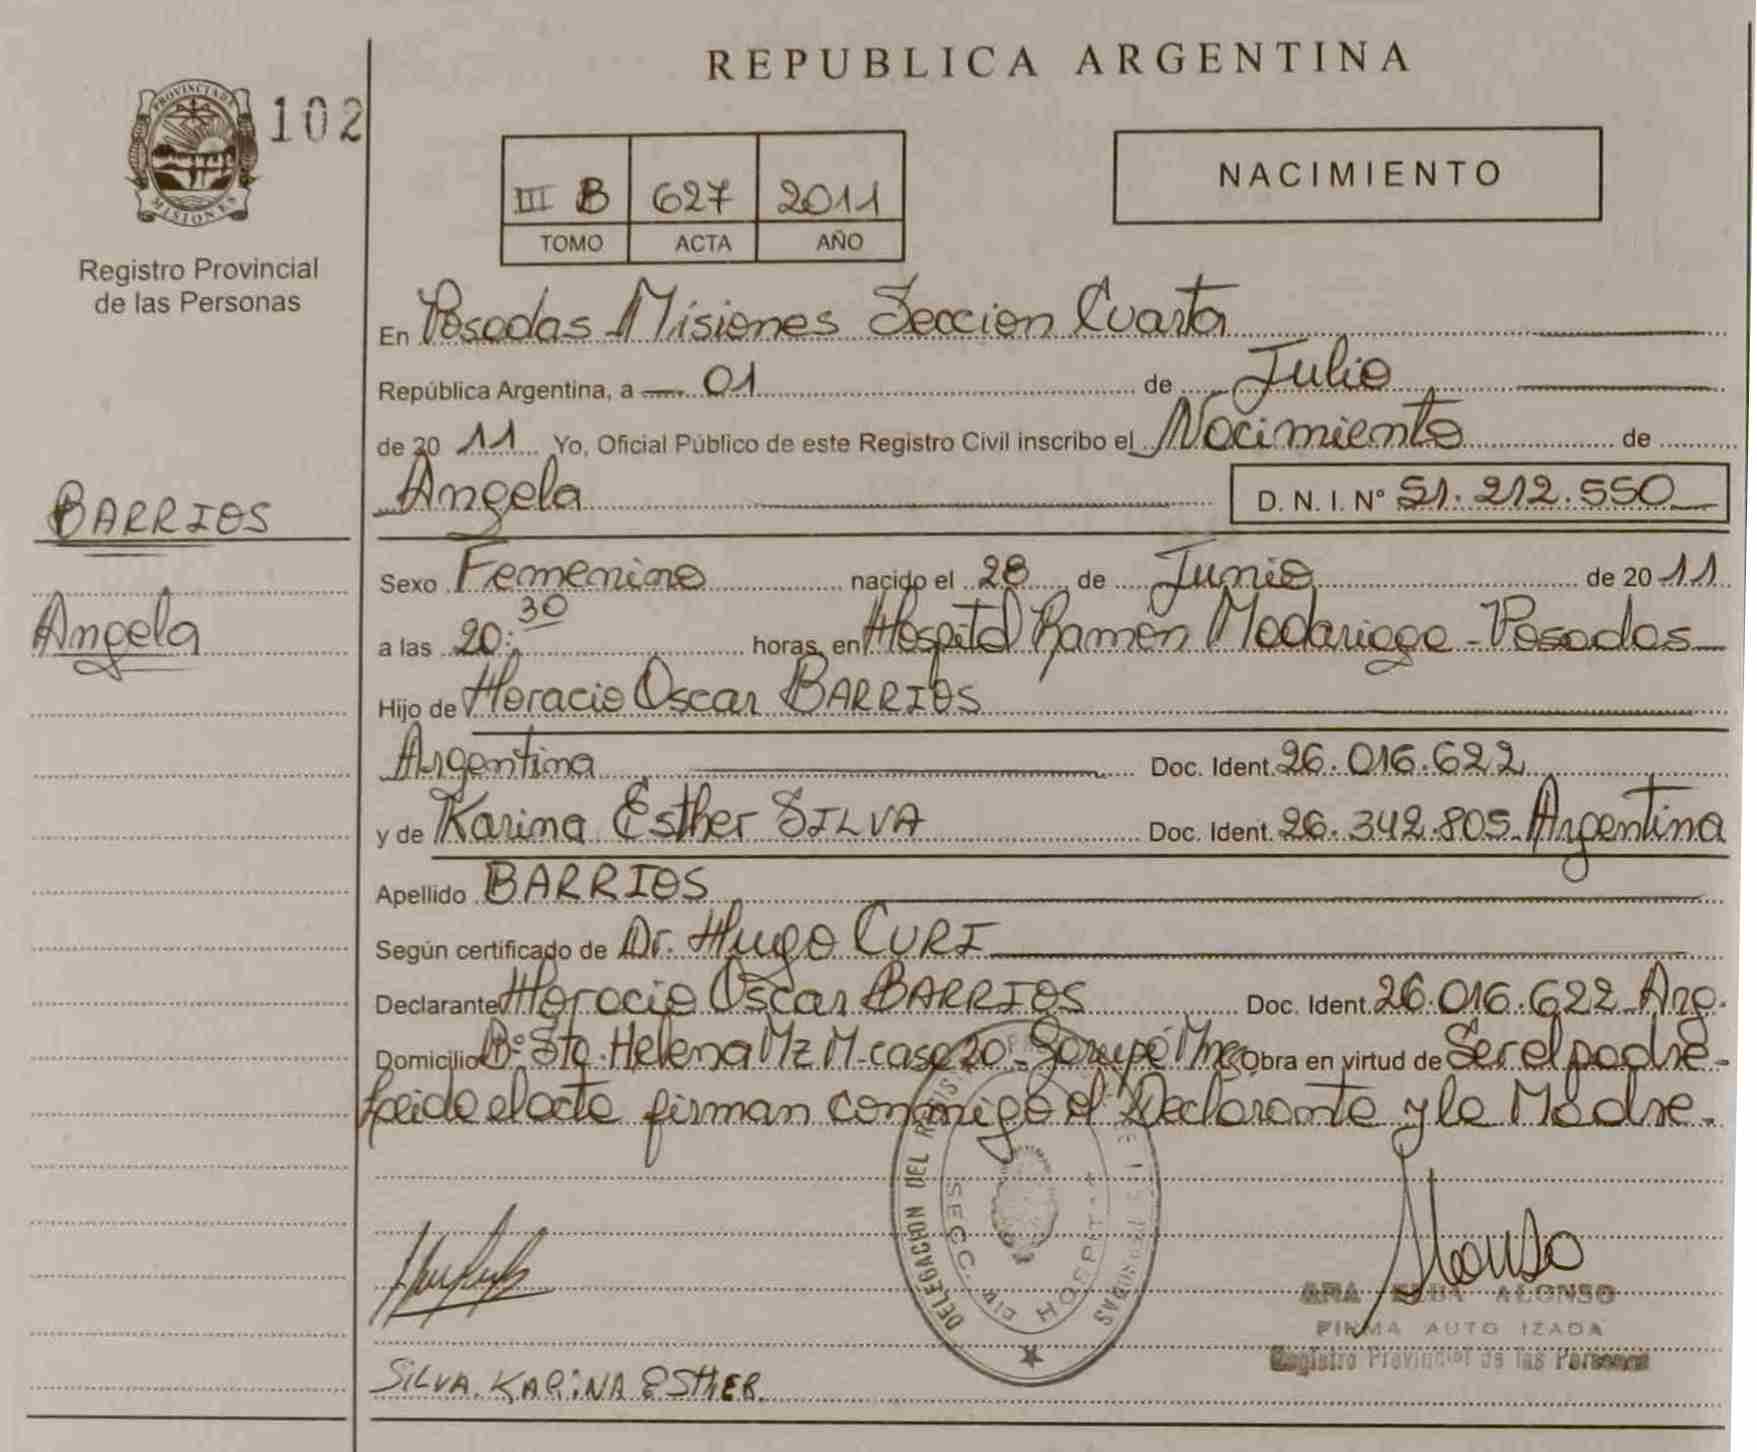 REPUBLICA ARGENTINA
PROVINCIA DE
MISIONES
102
Registro Provincial
de las Personas
III B 627 2011
TOMO ACTA AÑO
NACIMIENTO
En Posadas Misiones Seccion Cuarta
República Argentina, a 01 de Julio
de 20 11 Yo, Oficial Público de este Registro Civil inscribo el Nacimiento de
Angela D. N. I. N° 51.212.550
BARRIOS
Angela
Sexo Femenino nacido el 28 de Junio de 20 11
a las 20:30 horas, en Hospital Ramón Madariaga - Posadas
Hijo de Horacio Oscar BARRIOS
Argentina Doc. Ident. 26.016.622
y de Karina Esther SILVA Doc. Ident. 26.342.805 - Argentina
Apellido BARRIOS
Según certificado de Dr. Hugo CURI
Declarante Horacio Oscar BARRIOS Doc. Ident. 26.016.622 Arg.
Domicilio B° Sta. Helena Mz M - casa 20 - Garupé Mnes Obra en virtud de Ser el padre -
Leida el acta firman conmigo el Declarante y la Madre.
DELEGACION DEL
SECC. HOSPIT.
POSADAS
Alonso
ELBA ALONSO
FIRMA AUTO IZADA
Registro Provincial de las Personas
SILVA KARINA ESTHER